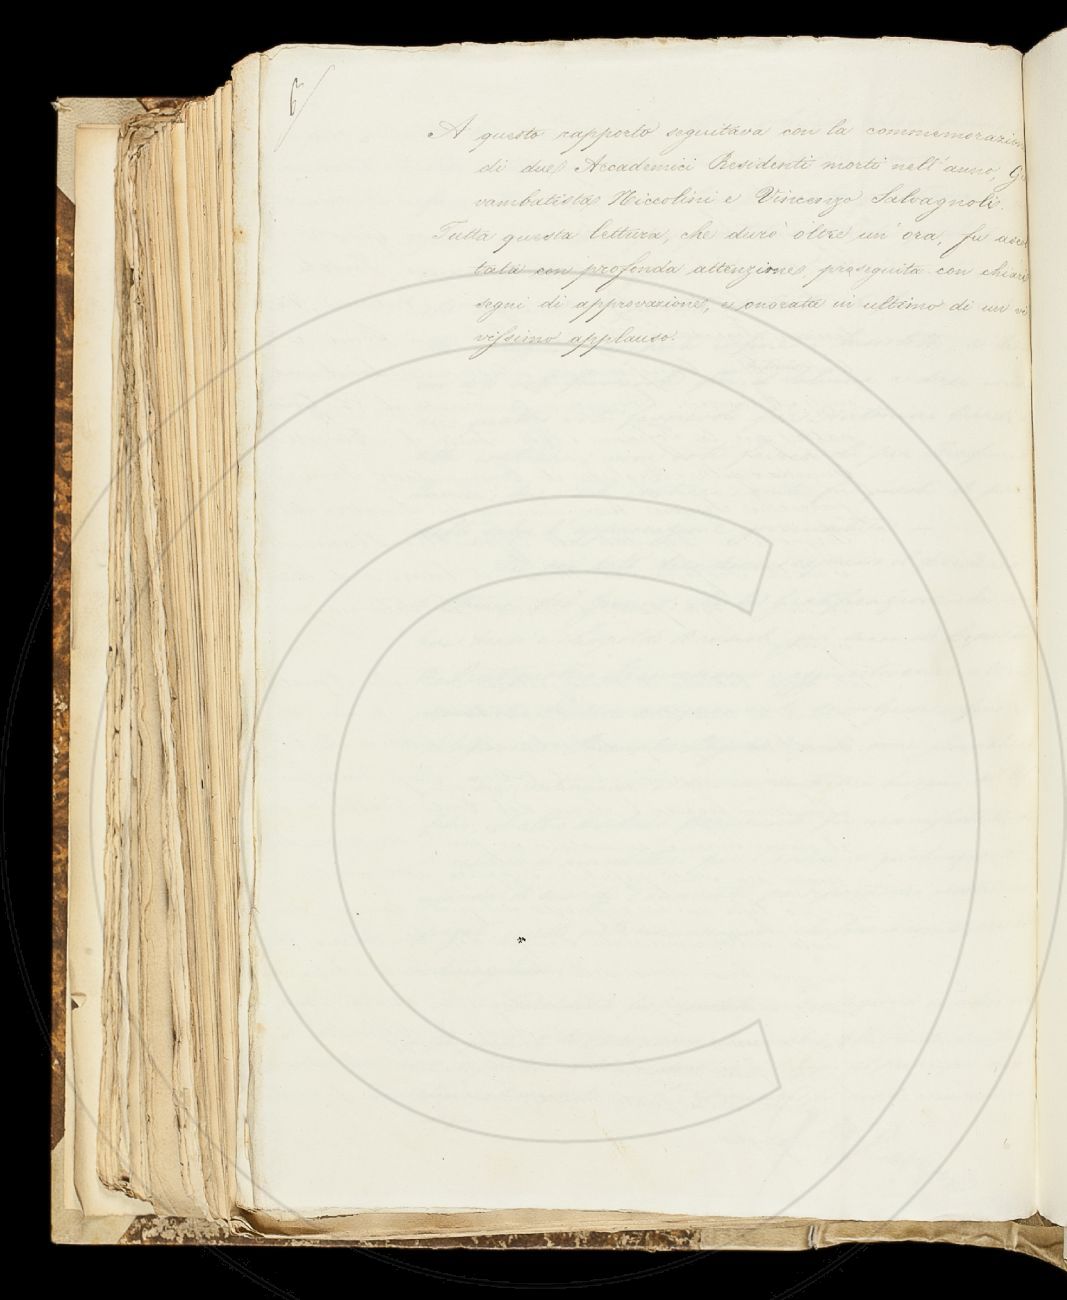 6
A questo rapporto seguitava con la commemorazion
di due Accademici Residenti morti nell'anno, Gio
vambatista Niccolini e Vincenzo Salvagnoli.
Tutta questa lettura, che durò oltre un'ora, fu ascol
tata con profonda attenzione, proseguita con chiari
segni di approvazione, e onorata in ultimo di un vi
vissimo applauso.